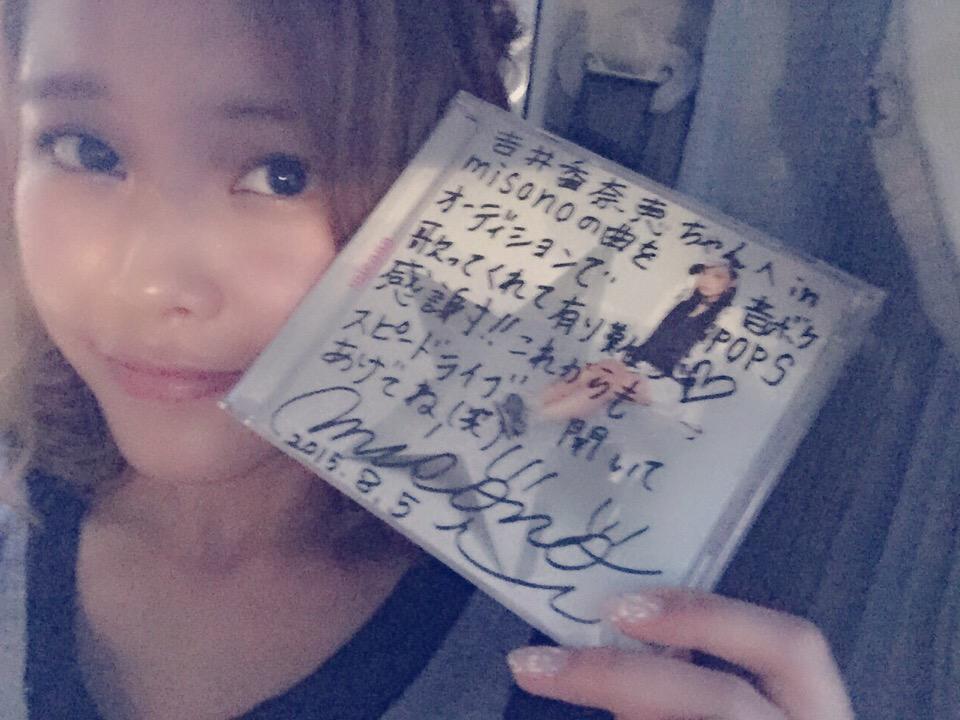 吉井香奈恵ちゃんへ in
misonoの曲を 音ボケ
オーディションで POPS♡
歌ってくれて有り難
感謝!! これからも
スピードライブ 聞いて
あげてね!(笑)!!!
misono
2015.8.5